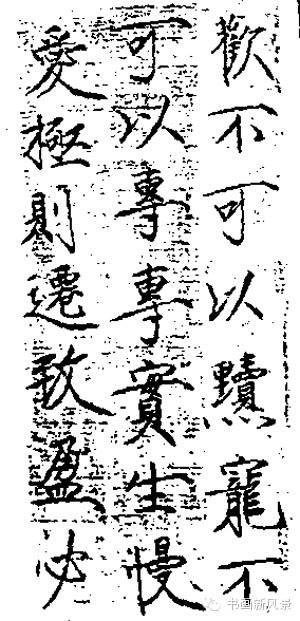 歡不可以黷寵不
可以專專實生慢
愛極則遷致盈必
书画新风景